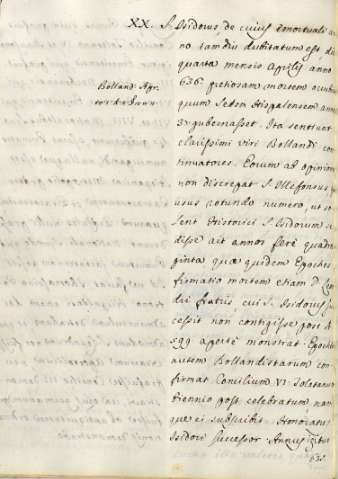 XX. S. Isidorus, de cuius emortuali an-
no tamdiu dubitatum est, die
quarta mensis Aprilis anno
636. pretiosam mortem
Bolland. Apr.
quum Sedem Hispalensem ann.
gubernasset. Ita sentiunt
clarissimi viri Bollandi con-
tinuatores. Eorum ab opinione
non discrepat S. Illefonsus
usus rotundo numero, ut so-
lent Historici S. Isidorum se-
disse ait annos ferè quadra-
ginta quae quidem Epochae
firmatio mortem etiam D. Lean-
dri fratris cui S. Isidorus suc-
cessit non contigisse post
599 apertè monstrat. Epocham
autem Bollandistarum con-
firmat Concilium VI. Toletanum
triennio post celebratum, nam-
que ei subscribit Honoratus
Isidori successor. Annus igitur
636.